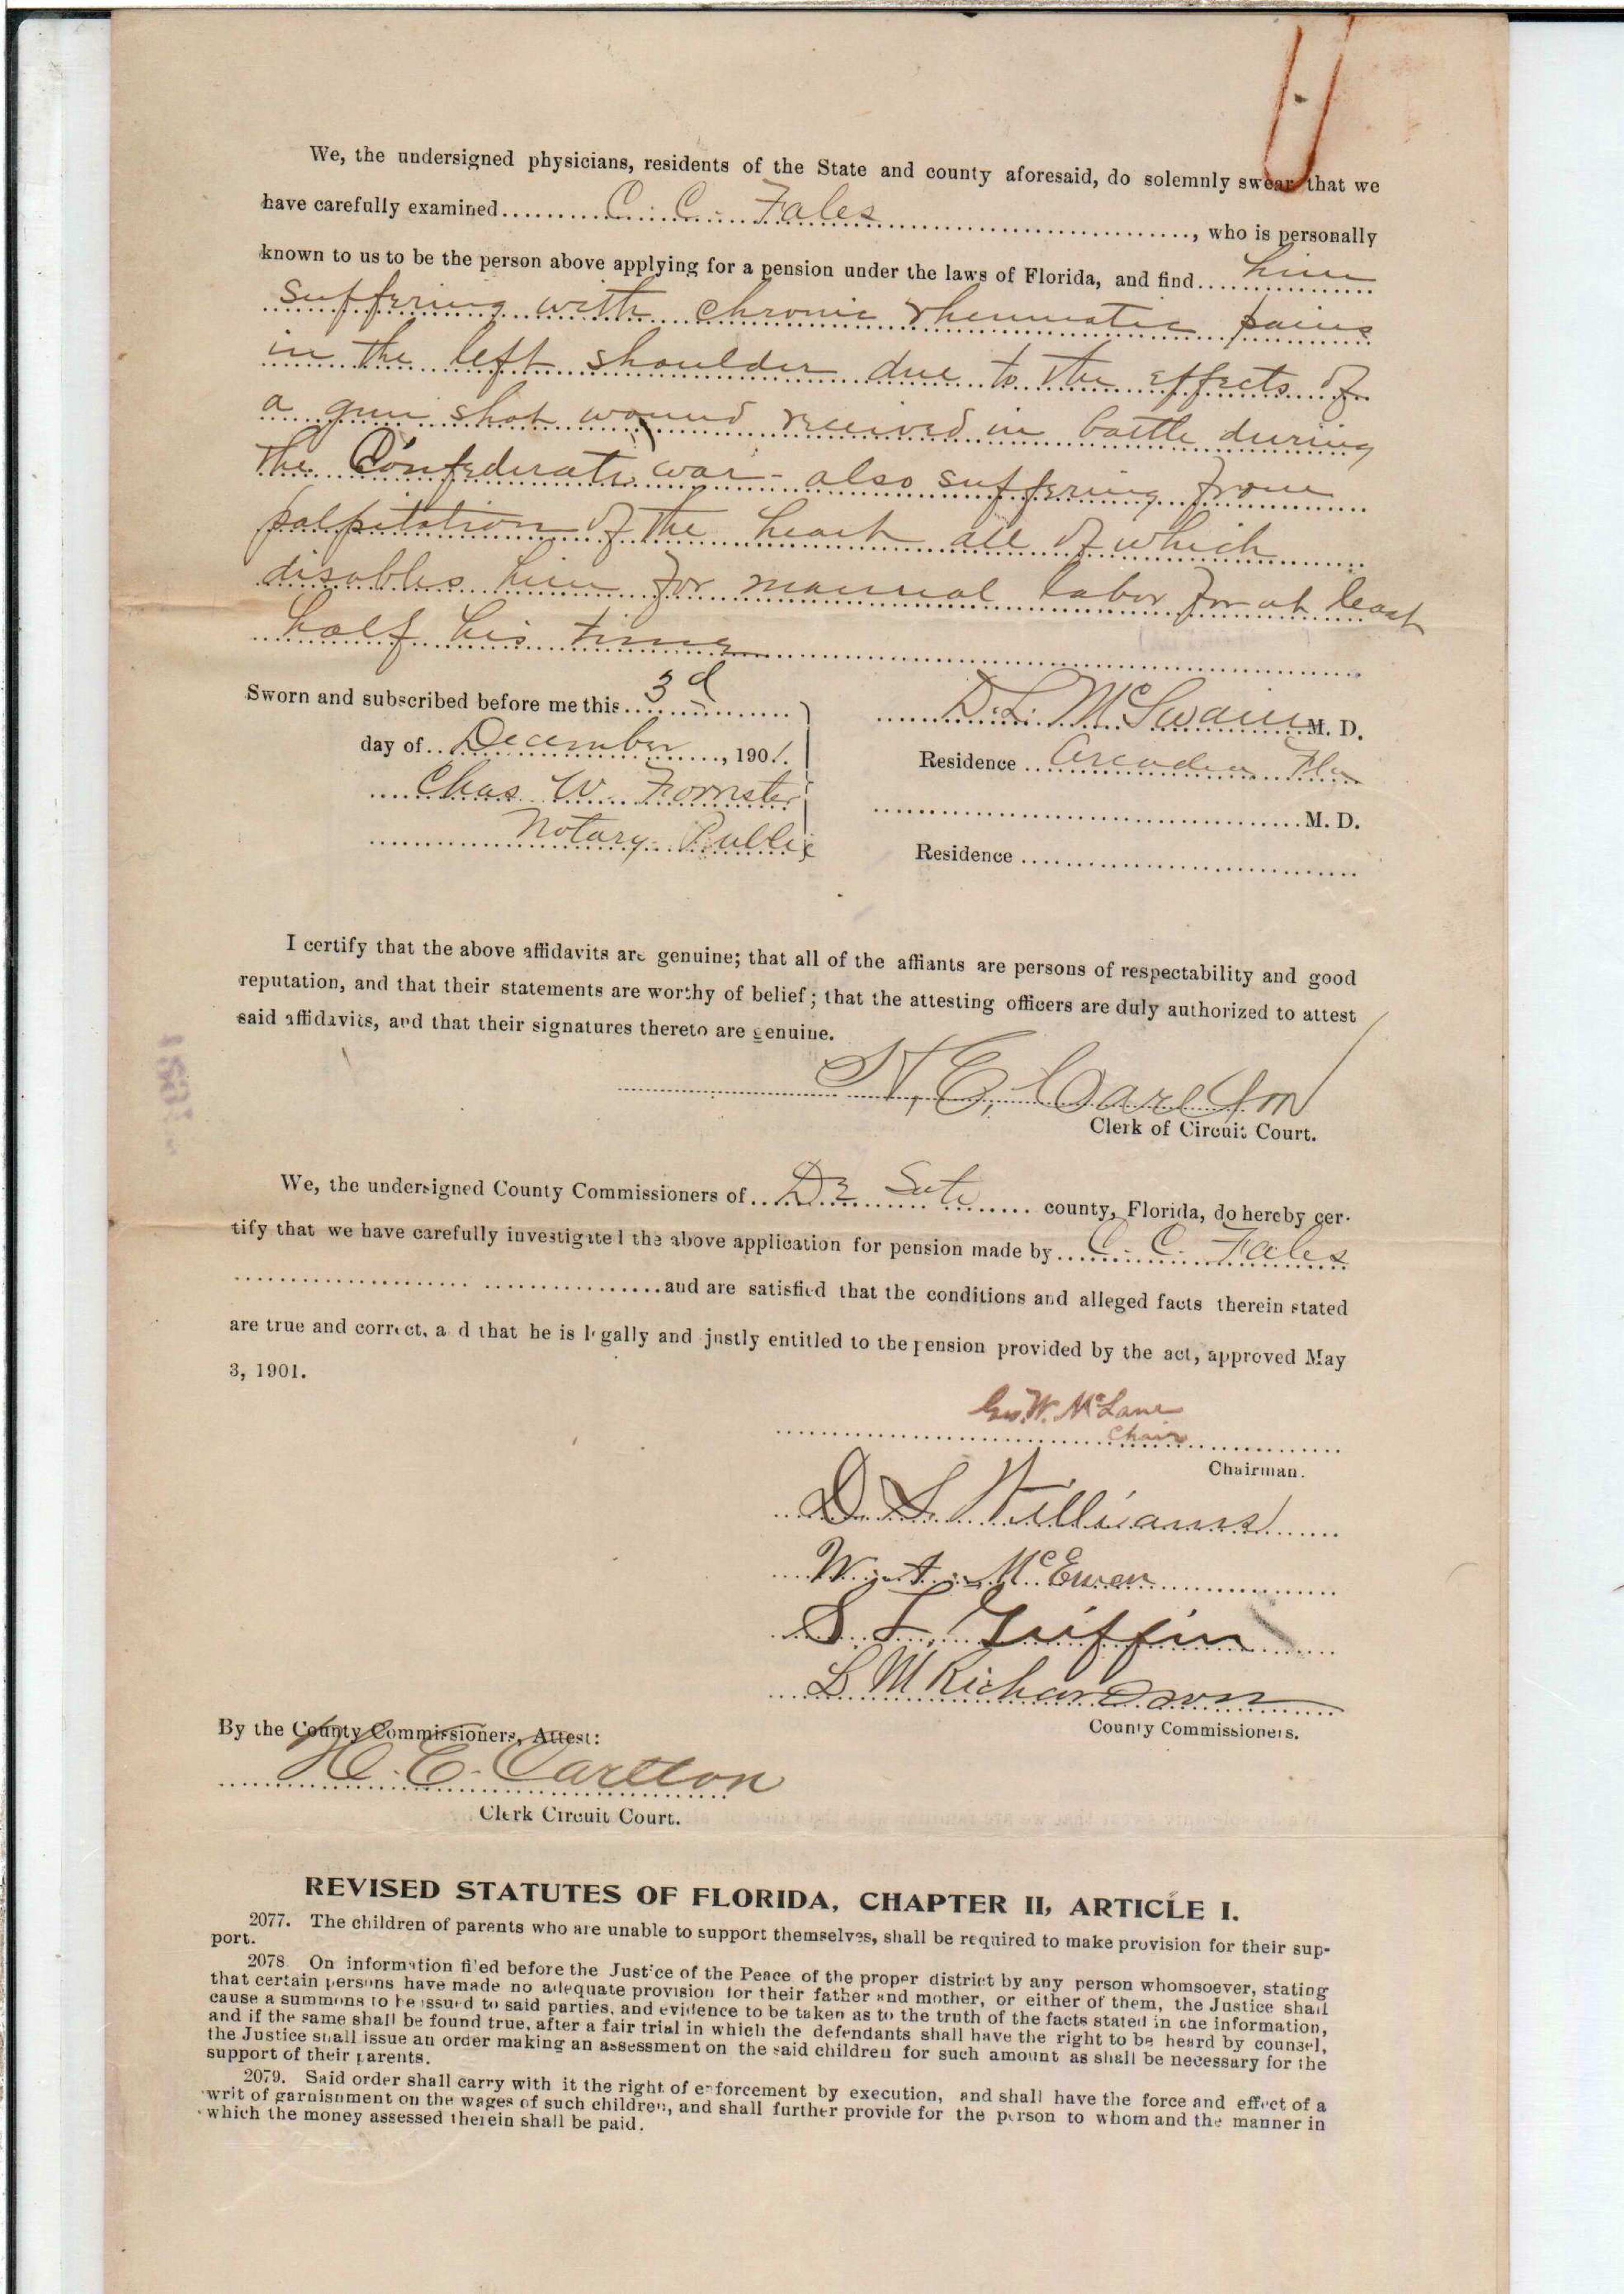 We, the undersigned physicians, residents of the State and county aforesaid, do solemnly swear that we
have carefully examined C. C. Fales, who is personally
known to us to be the person above applying for a pension under the laws of Florida, and find him
suffering with chronic rheumatic pains
in the left shoulder due to the effects of
a gun shot wound received in battle during
the Confederate war - also suffering from
palpitation of the heart all of which
disables him for manual labor for at least
half his time
Sworn and subscribed before me this 3d
day of December, 1901.
Chas W. Forrster
Notary Public
D. L. McSwain M. D.
Residence Arcadia Fla
M. D.
Residence
I certify that the above affidavits are genuine; that all of the affiants are persons of respectability and good
reputation, and that their statements are worthy of belief; that the attesting officers are duly authorized to attest
said affidavits, and that their signatures thereto are genuine.
H. E. Carlton
Clerk of Circuit Court.
We, the undersigned County Commissioners of De Soto county, Florida, do hereby cer-
tify that we have carefully investigated the above application for pension made by C. C. Fales
and are satisfied that the conditions and alleged facts therein stated
are true and correct, and that he is legally and justly entitled to the pension provided by the act, approved May
3, 1901.
Geo. W. McLane
Chair
Chairman.
D. S. Williams
W. A. McEwen
S. T. Griffin
L M Richardson
County Commissioners.
By the County Commissioners, Attest:
H. E. Carlton
Clerk Circuit Court.
REVISED STATUTES OF FLORIDA, CHAPTER II, ARTICLE I.
2077. The children of parents who are unable to support themselves, shall be required to make provision for their sup-
port.
2078. On information filed before the Justice of the Peace of the proper district by any person whomsoever, stating
that certain persons have made no adequate provision for their father and mother, or either of them, the Justice shall
cause a summons to be issued to said parties, and evidence to be taken as to the truth of the facts stated in the information,
and if the same shall be found true, after a fair trial in which the defendants shall have the right to be heard by counsel,
the Justice shall issue an order making an assessment on the said children for such amount as shall be necessary for the
support of their parents.
2079. Said order shall carry with it the right of enforcement by execution, and shall have the force and effect of a
writ of garnishment on the wages of such children, and shall further provide for the person to whom and the manner in
which the money assessed therein shall be paid.